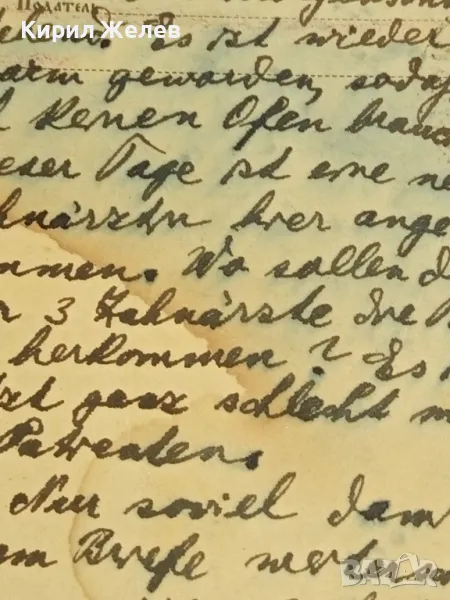 Кирил Желев
Податель
Es ist wieder
arm geworden, sodaß
keinen Ofen brauc
eser Tage ist eine ne
hnärztin hier ange
mmen. Wo sollen d
r 3 Zahnärzte die P
herkommen? Es
tzt ganz schlecht m
Patienten.
Nur soviel dam
m Briefe wert
bazar